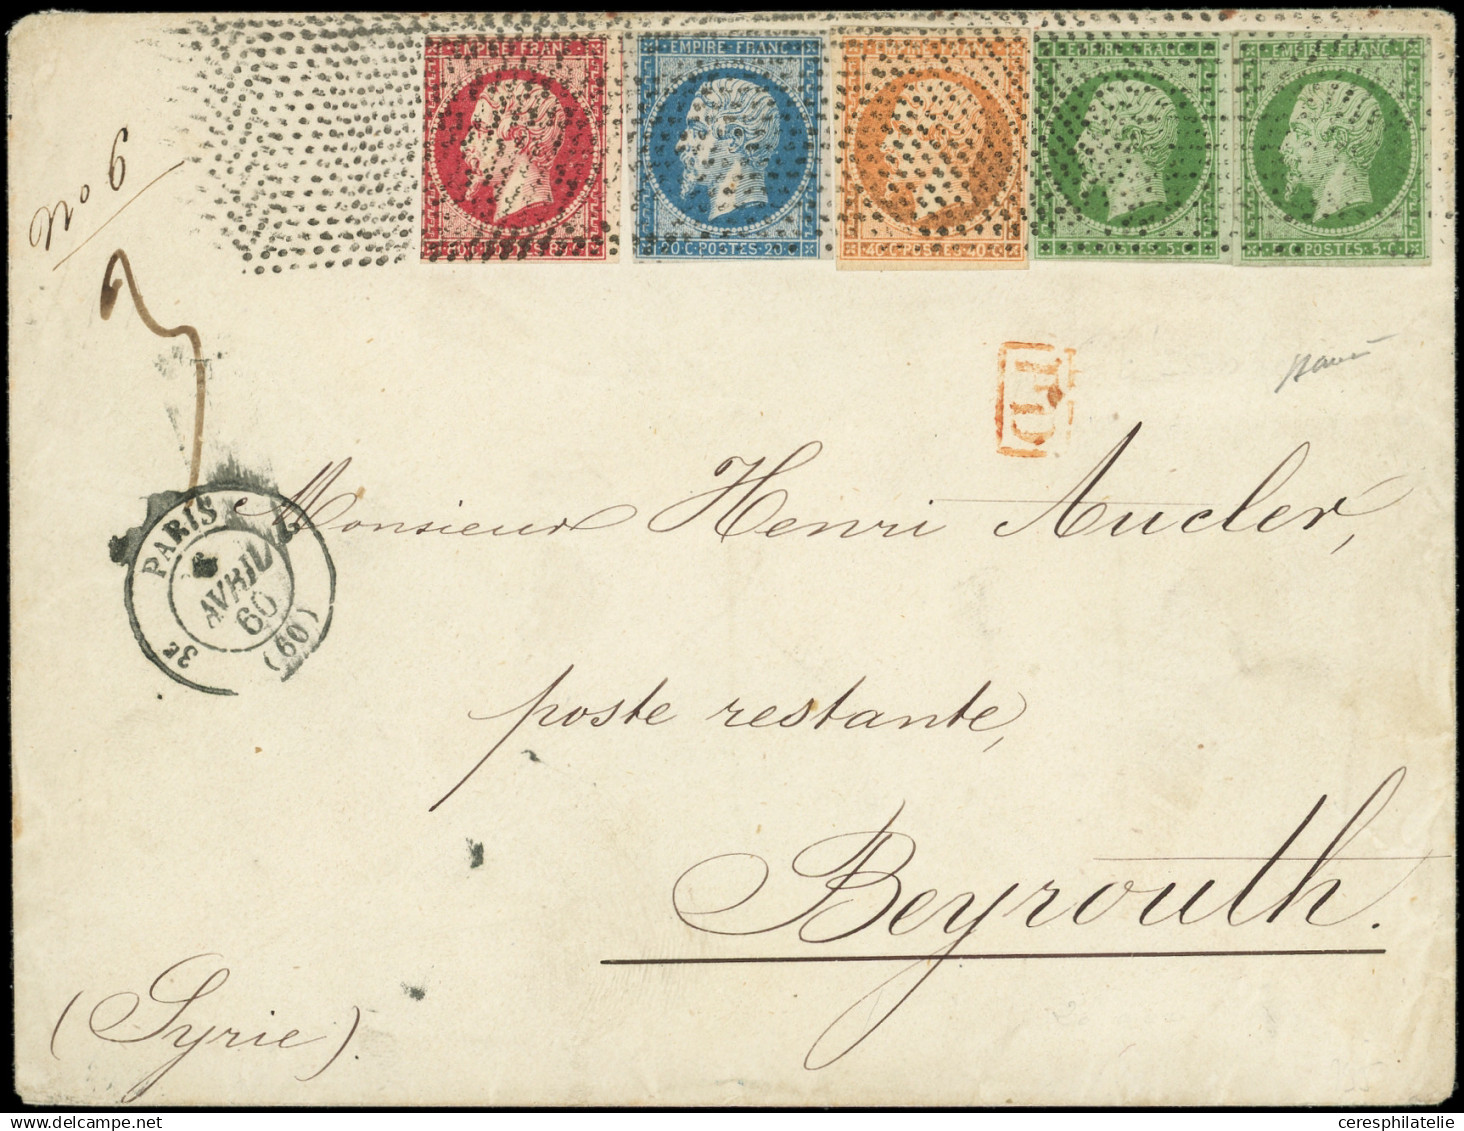 No 6
EMPIRE FRANC
EMPIRE FRANC
EMPIRE FRANC
EMPIRE FRANC
20 C POSTES 20 C
40 C POSTES 40 C
5 C POSTES 5 C
POSTES 5 C
PD
PARIS
AVRIL
60
3E
(60)
Monsieur Henri Aucler,
poste restante,
Beyrouth.
(Syrie).
ceresphilatelie.com